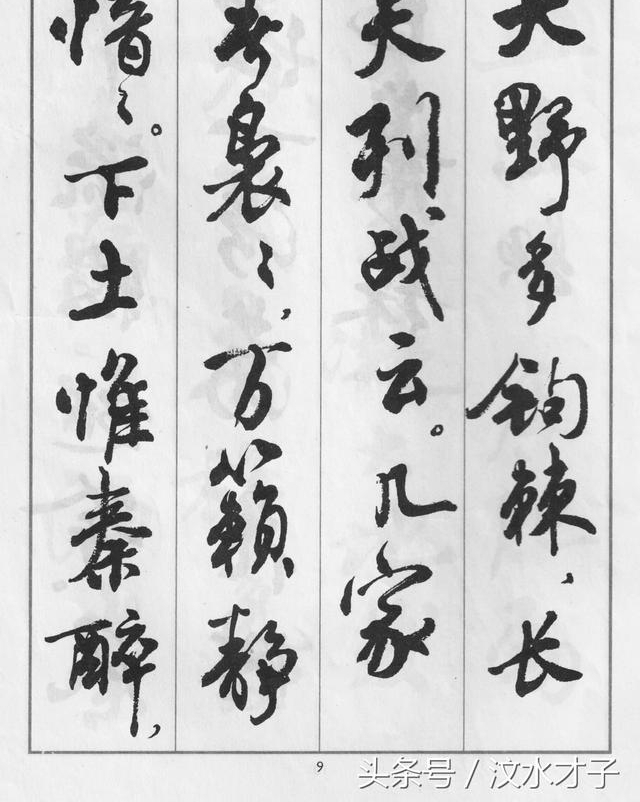 大野多钩棘、长
天列战云。几家
春袅〻,万籁静
愔〻。下土惟秦醉,
9
头条号 / 汶水才子